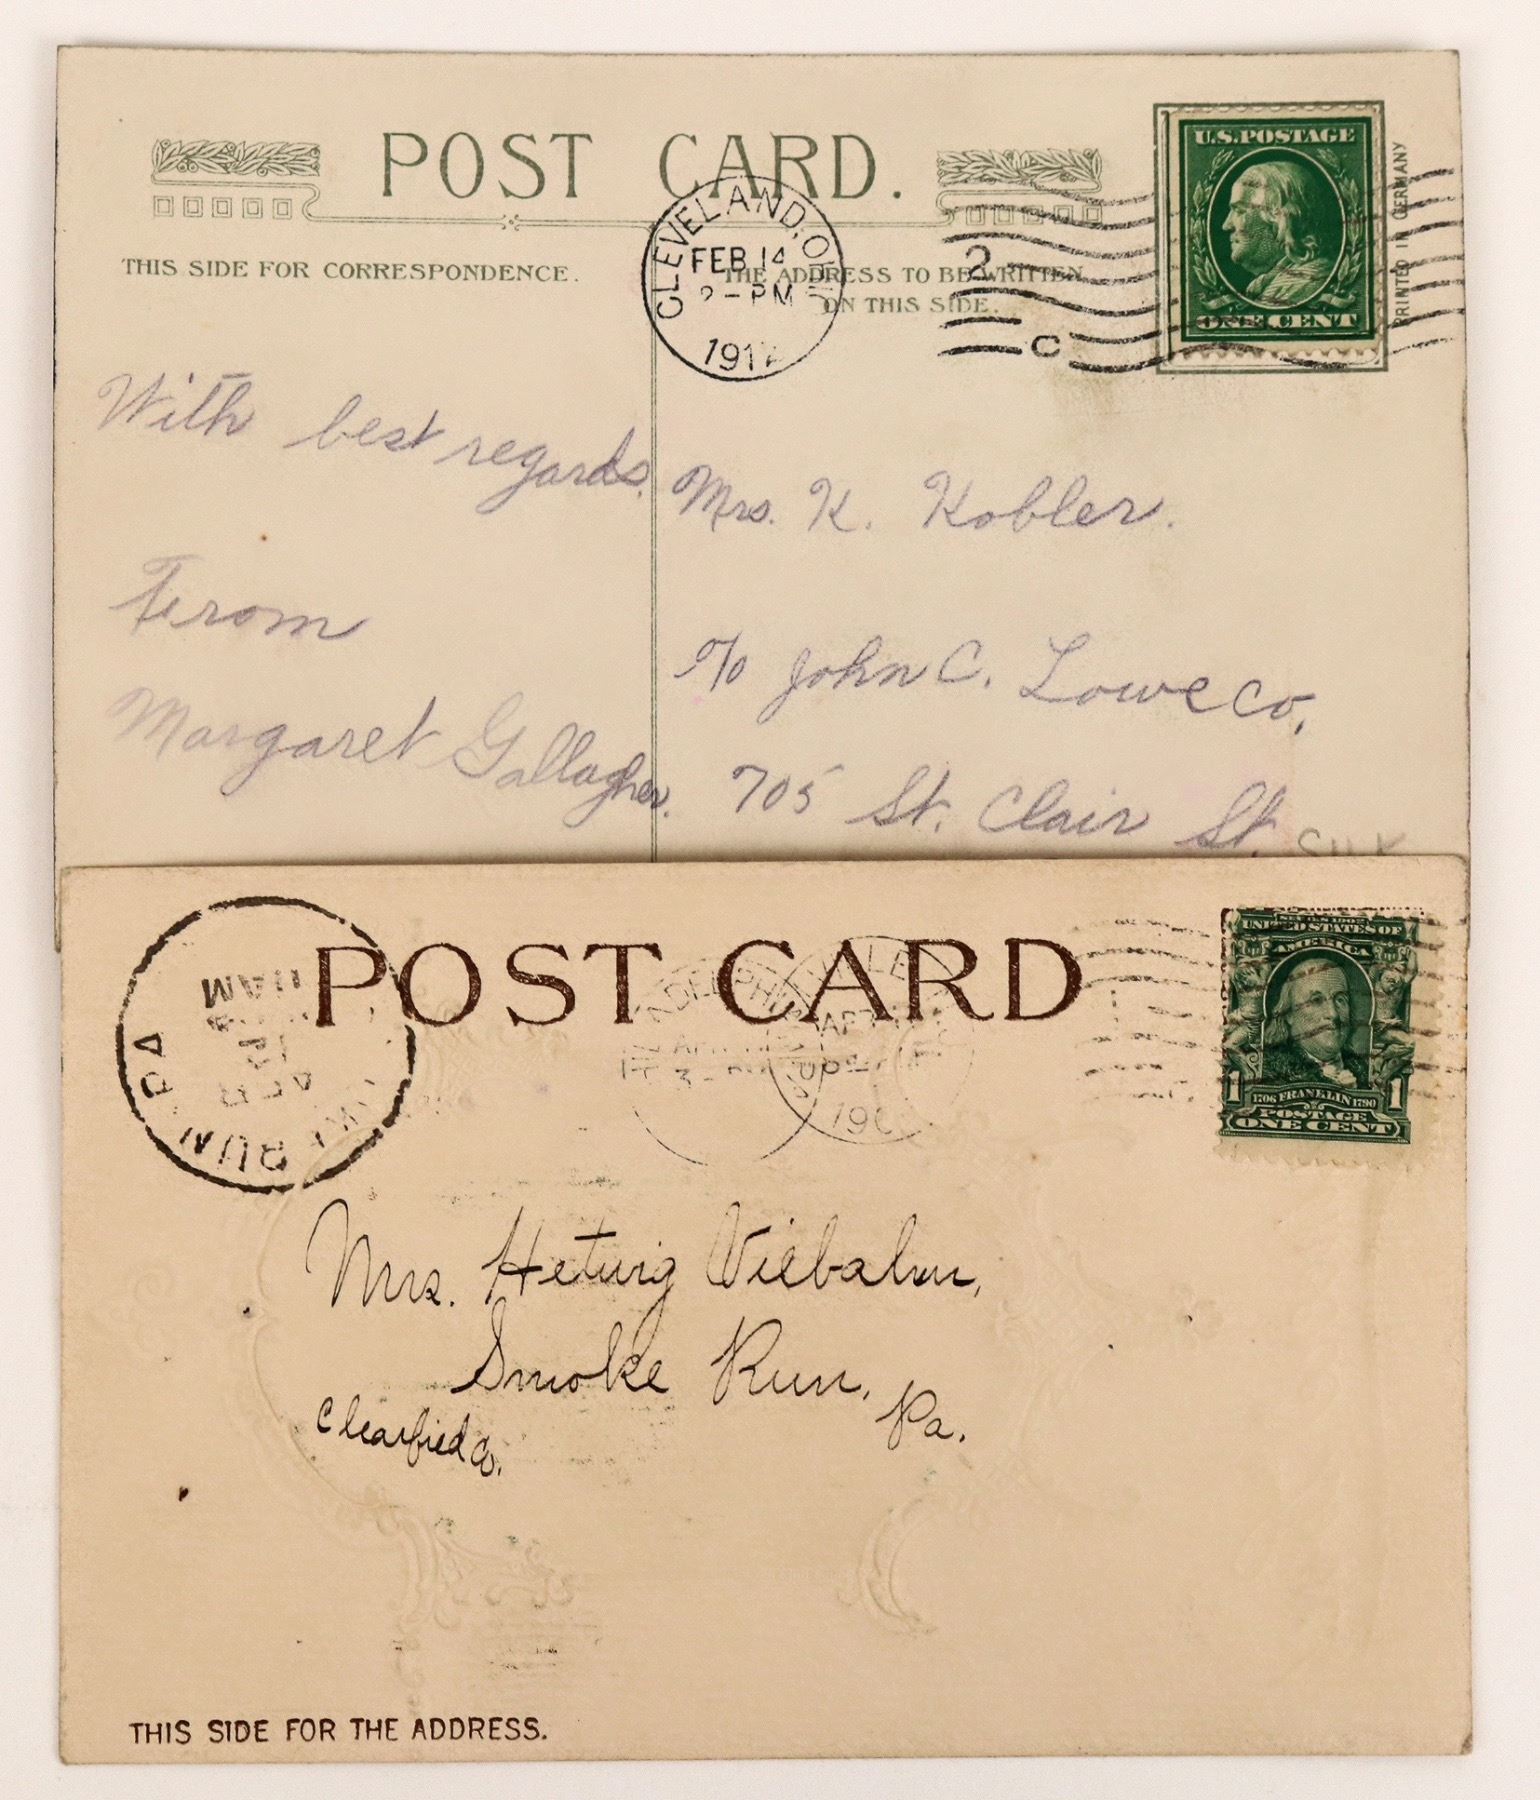 POST CARD.
THIS SIDE FOR CORRESPONDENCE.
THE ADDRESS TO BE WRITTEN
ON THIS SIDE.
CLEVELAND, O
FEB 14
2-PM
191
2
C
U.S. POSTAGE
ONE CENT
PRINTED IN GERMANY
With best regards.
From
Margaret Gallagher.
Mrs. K. Kobler.
c/o John C. Lowe Co.
705 St. Clair St.
SILK
POST CARD
RUN PA
SERIES 1902
UNITED STATES OF
AMERICA
1 1
1706 FRANKLIN 1790
POSTAGE
ONE CENT
Mrs. Hetwig Viebahn,
Smoke Run,
Pa.
Clearfield Co.
THIS SIDE FOR THE ADDRESS.